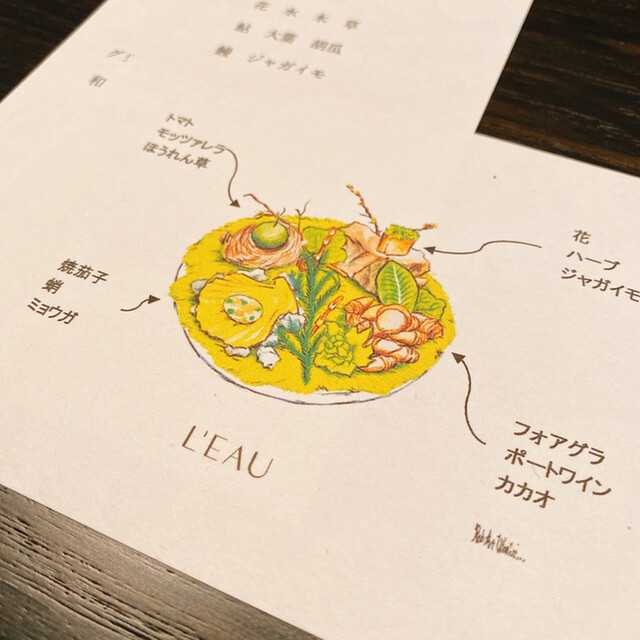 花 水 木 草
鮎 大葉 胡瓜
鱧 ジャガイモ
和
トマト
モッツアレラ
ほうれん草
花
ハーブ
ジャガイモ
焼茄子
蛸
ミョウガ
フォアグラ
ポートワイン
カカオ
L'EAU